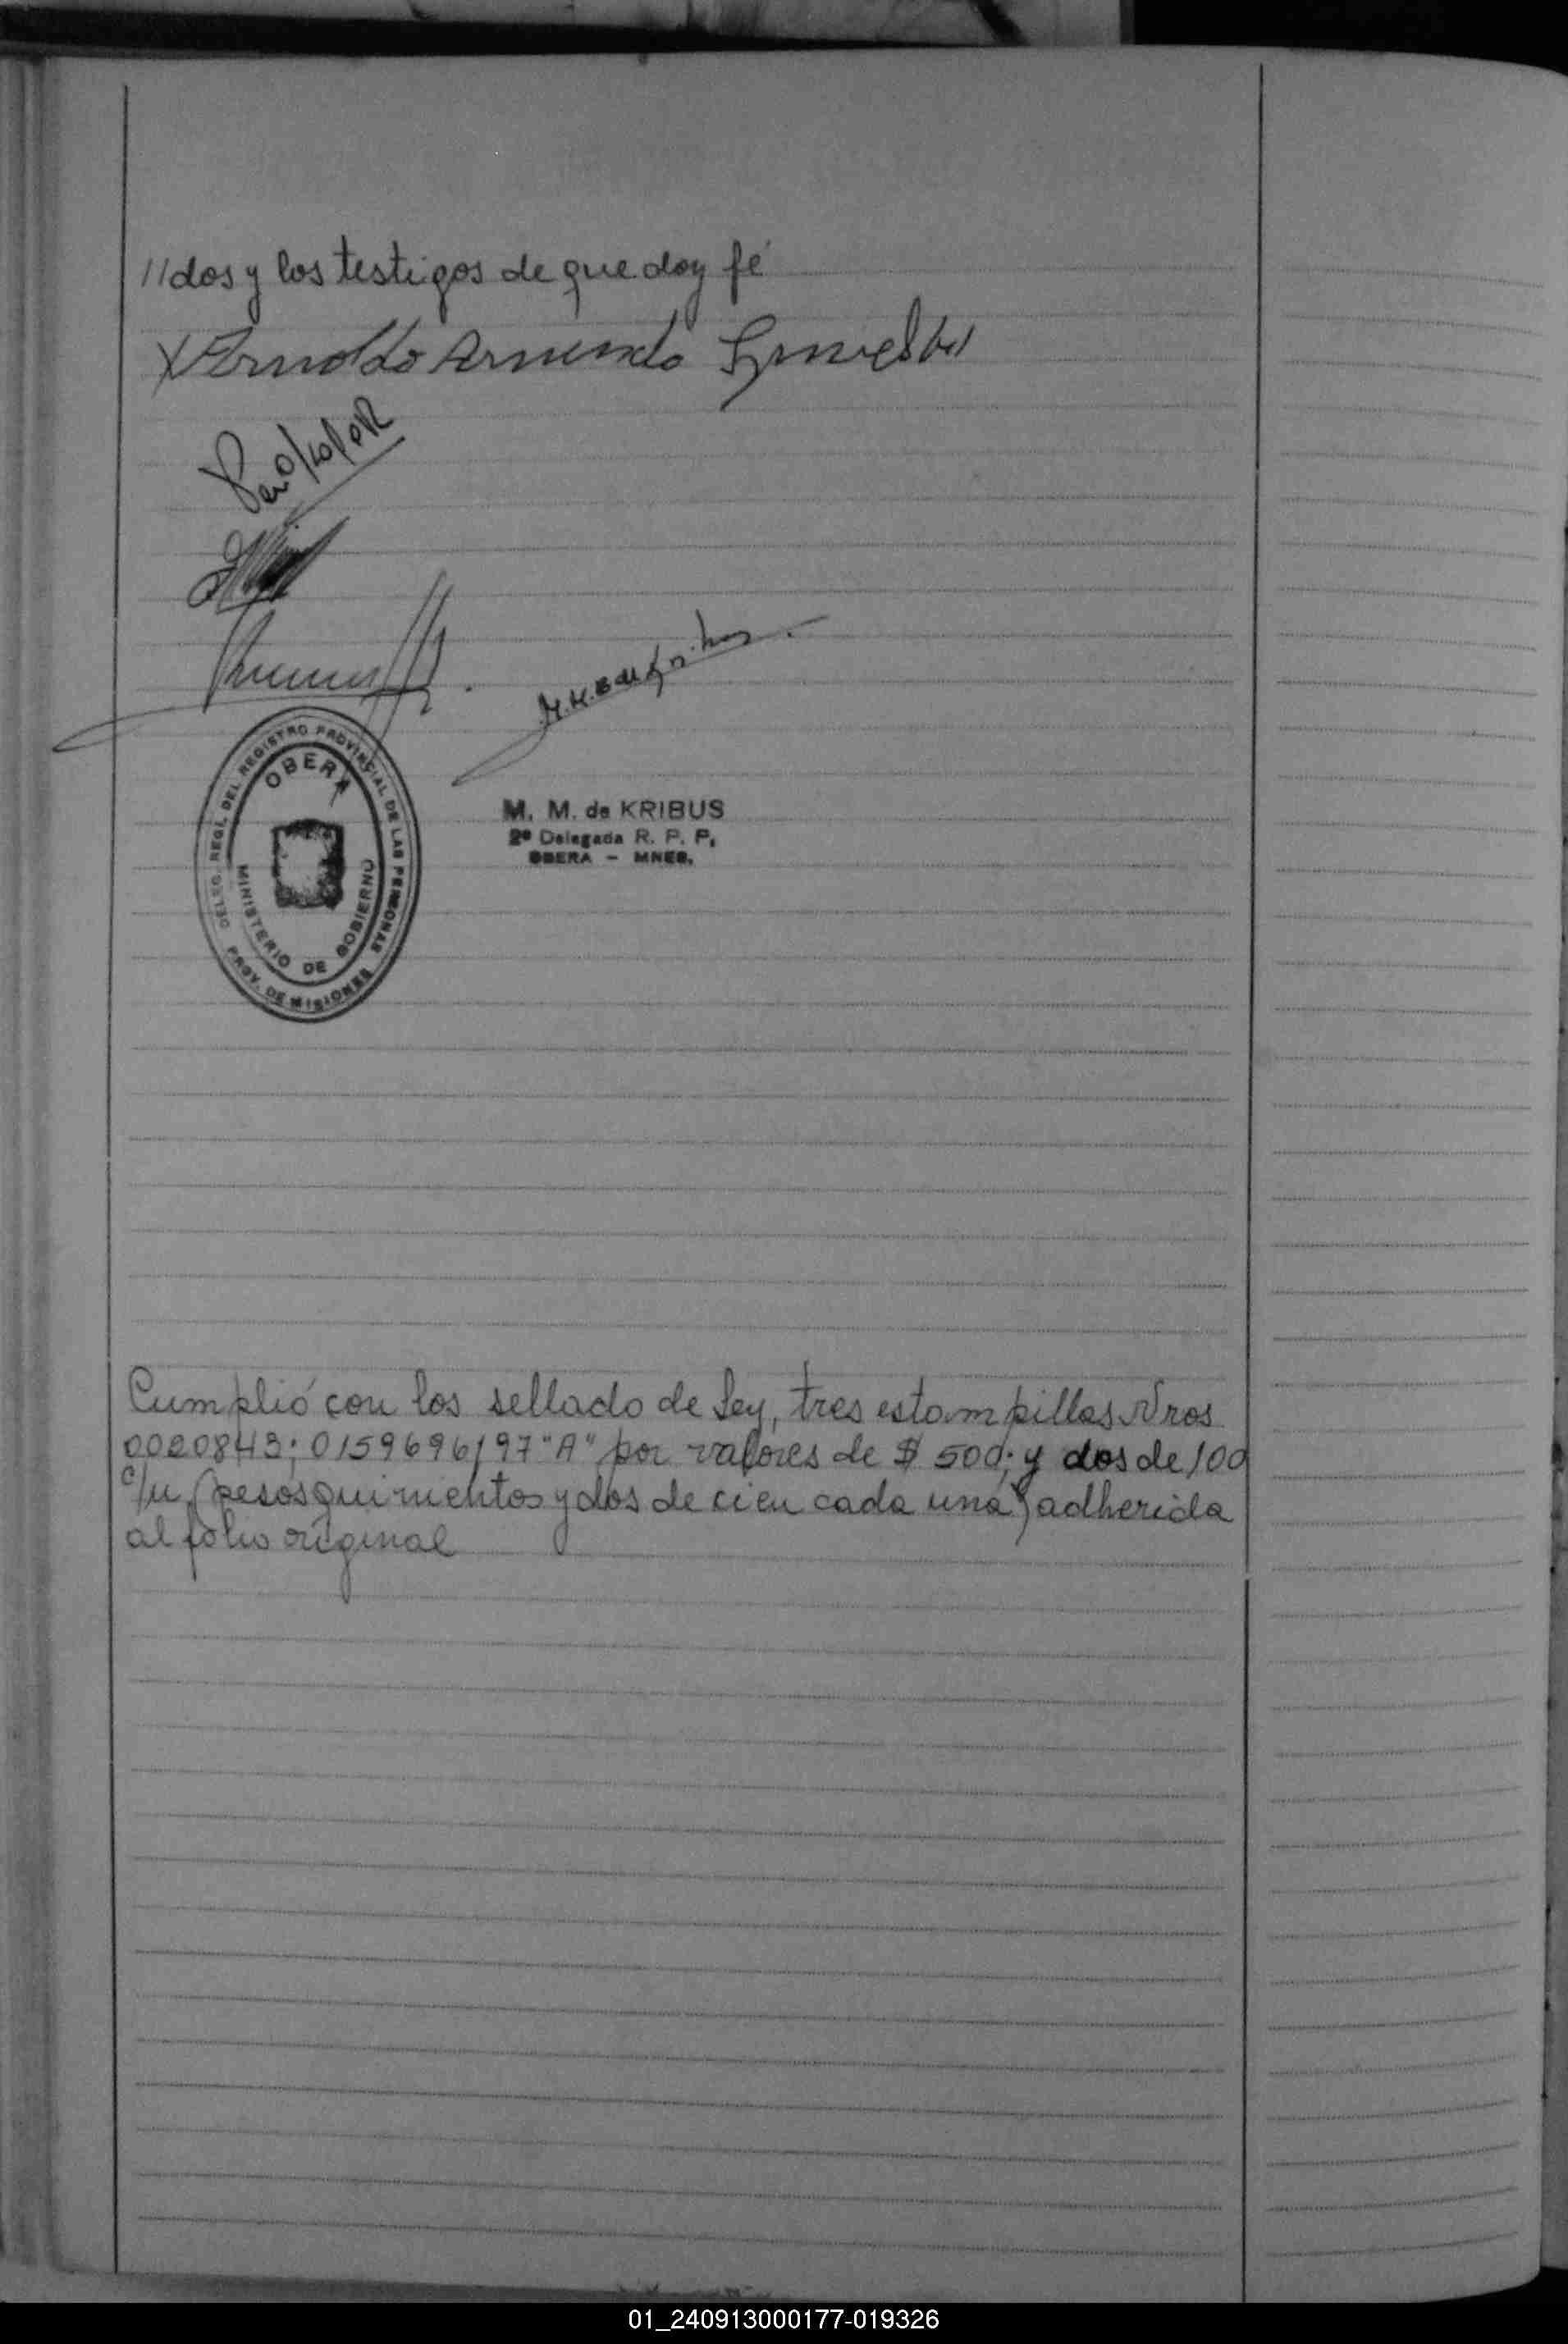 //dos y los testigos de que doy fé
Arnoldo Armindo
OBERA
DELEG. REGL. DEL REGISTRO PROVINCIAL DE LAS PERSONAS
MINISTERIO DE GOBIERNO
PROV. DE MISIONES
M. M. de KRIBUS
2º Delegada R. P. P.
OBERA - MNES.
Cumplió con los sellado de Ley, tres estampillas Nros
0020843; 0159696/97 "A" por valores de $ 500; y dos de 100
c/u (pesos quinientos y dos de cien cada una) adherida
al folio original
01_240913000177-019326